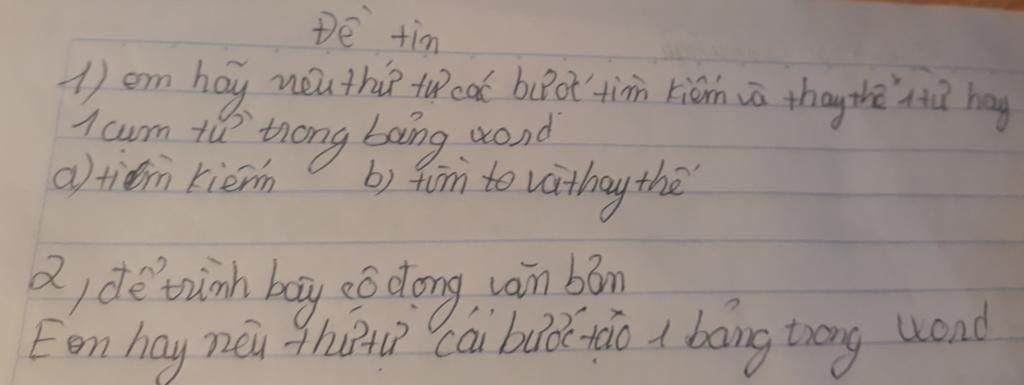 Đề tin
1) em hãy nêu thứ tự các bước tìm kiếm và thay thế 1 từ hay
1 cụm từ trong bảng word
a) tìm kiếm b) tìm to và thay thế
2, để trình bày cô đọng văn bản
Em hay nêu thứ tự cái bước tạo 1 bảng trong word